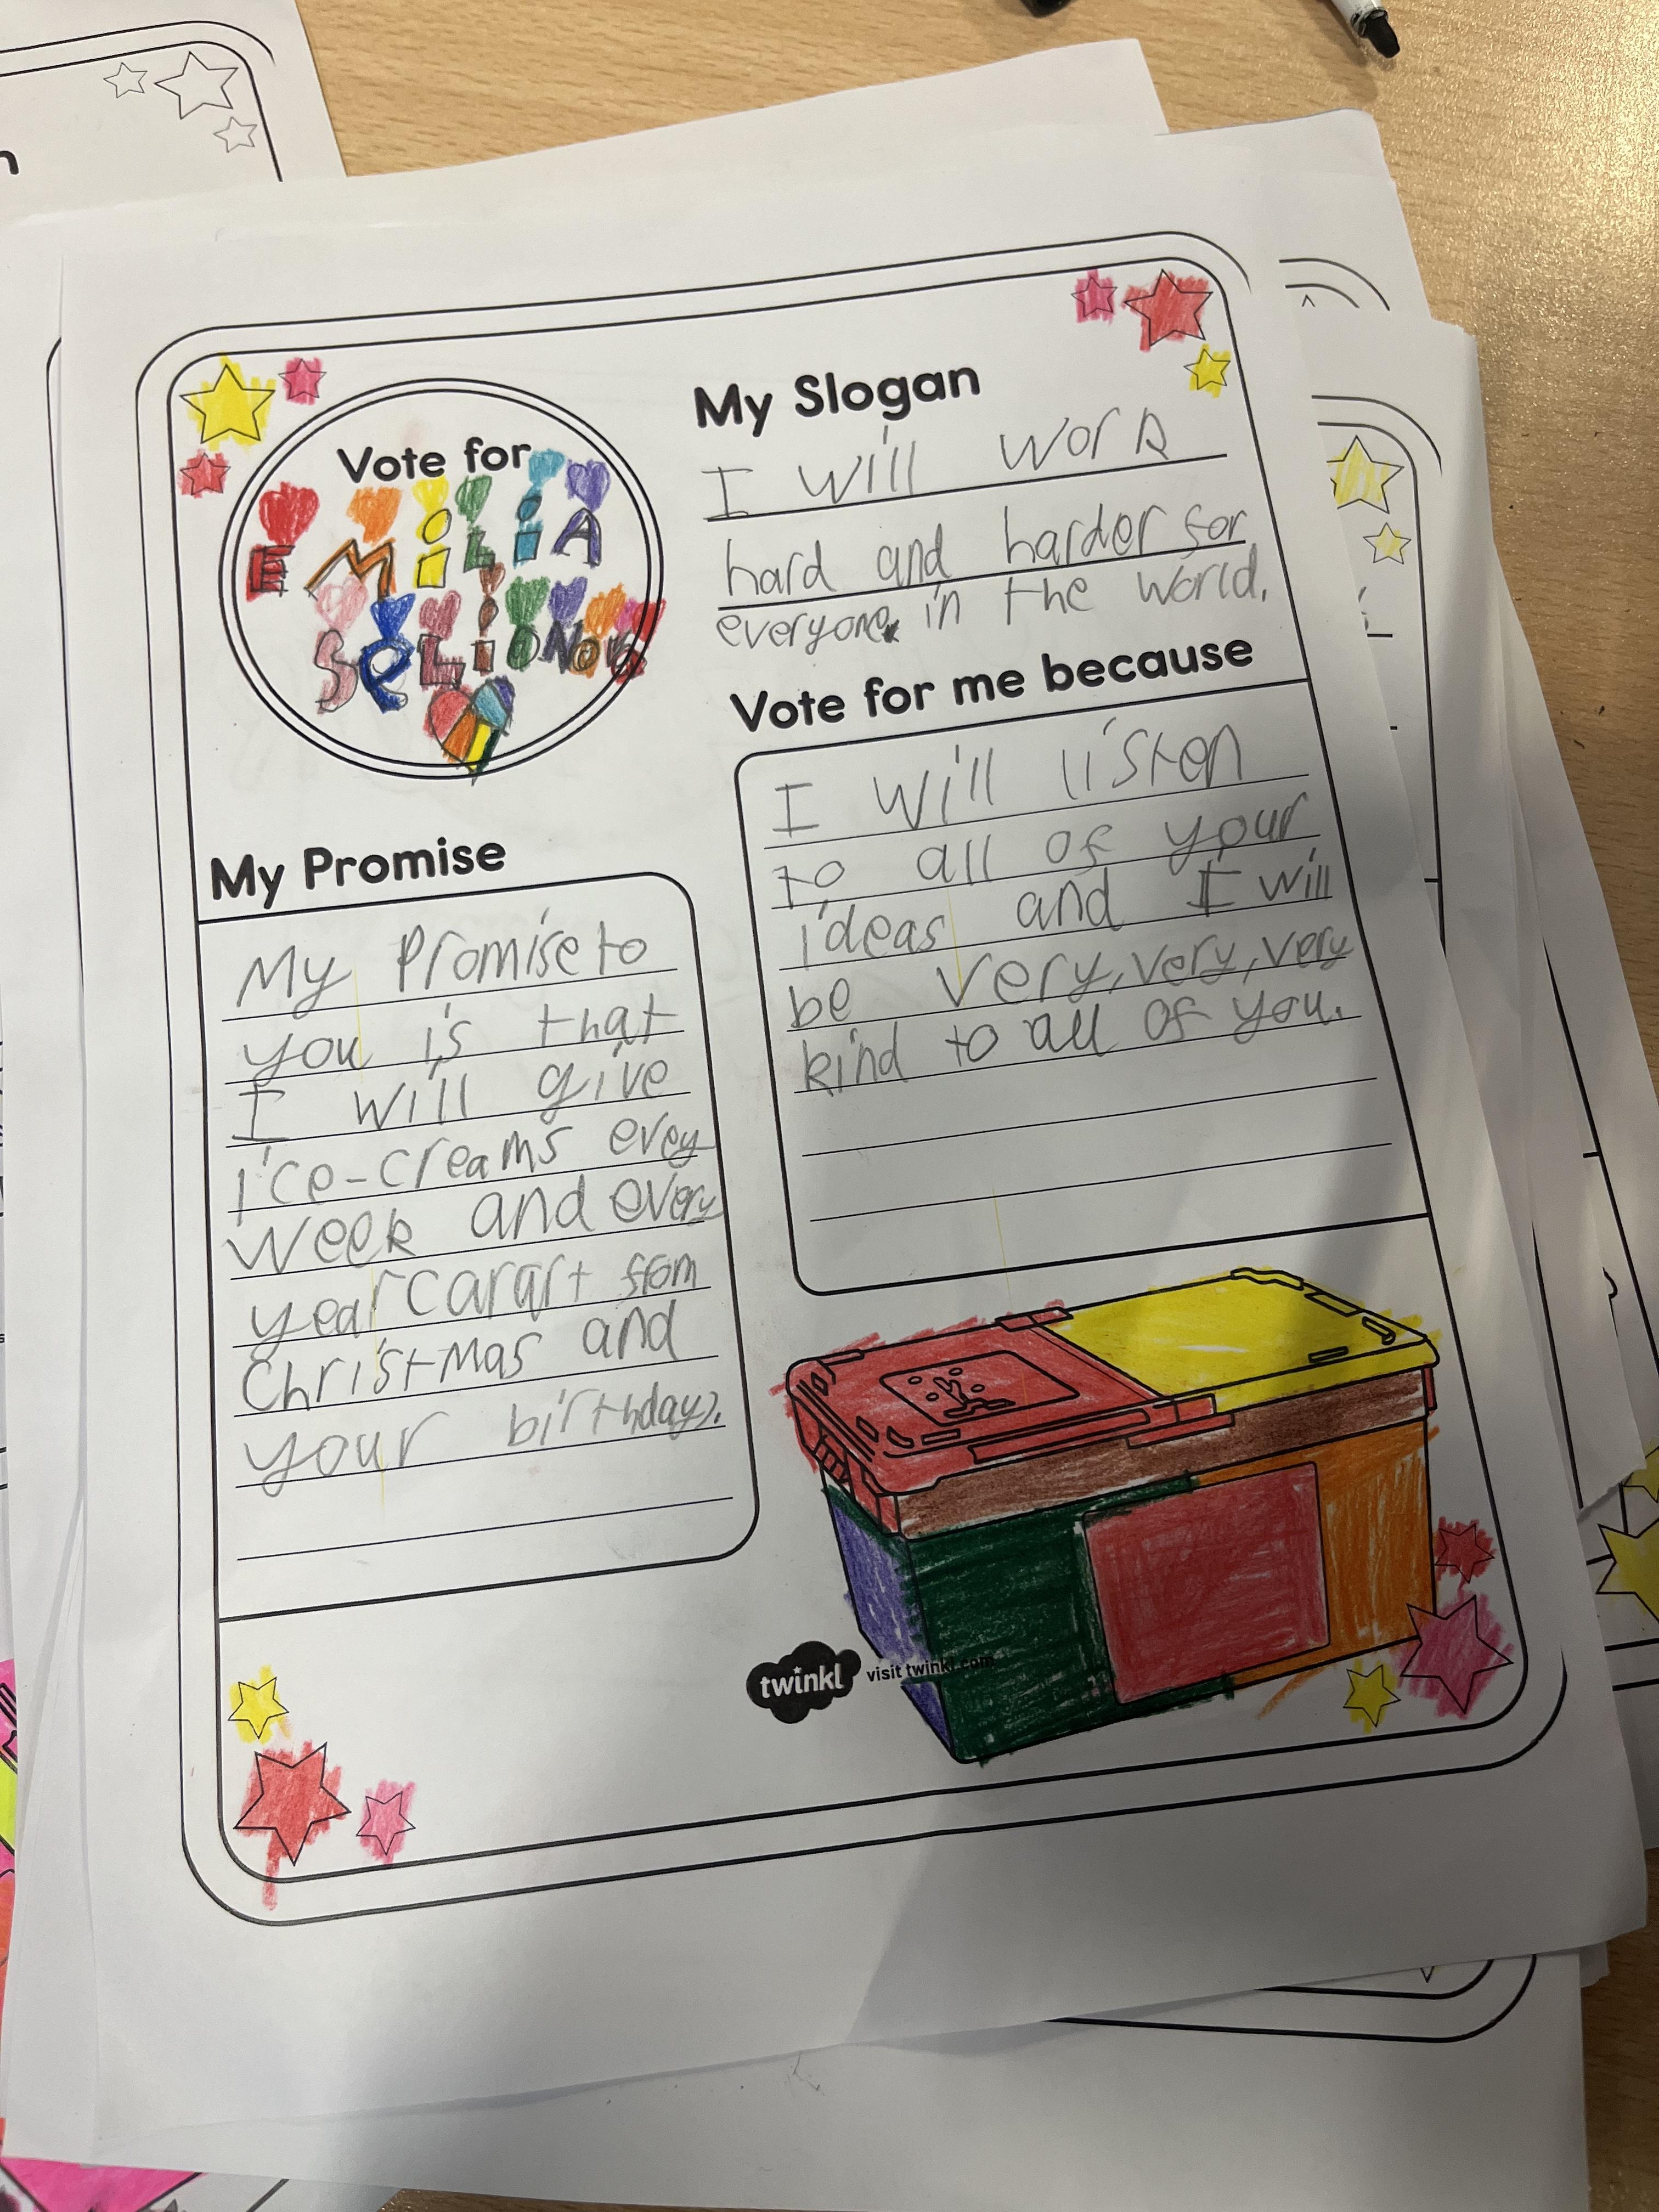 Vote for
EMiLiA
SeLiONOR
My Slogan
I will work
hard and harder for
everyone in the world.
Vote for me because
I will listen
to all of your
ideas and I will
be very, very, very
kind to all of you.
My Promise
My Promise to
you is that
I will give
ice-creams evey
week and every
year carart from
Christmas and
your birthday).
twinkl visit twinkl.com